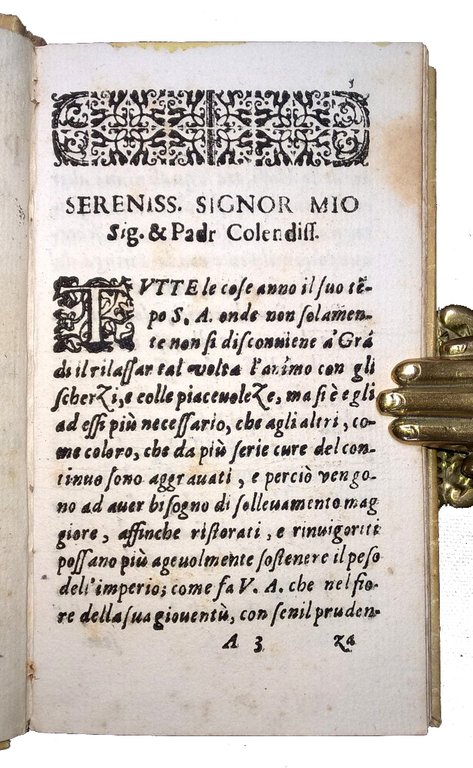 SERENISS. SIGNOR MIO
Sig. & Padr Colendiſſ.
TVTTE le coſe anno il ſuo tẽ-
po S. A. onde non ſolamen-
te non ſi diſconuiene à Grã
di il rilaſſar tal volta l'animo con gli
ſcherZi, e colle piaceuoleZe, ma ſi è egli
ad eſſi più neceſſario, che agli altri, co-
me coloro, che da più ſerie cure del con-
tinuo ſono aggrauati, e perciò vengo-
no ad auer biſogno di ſolleuamento mag
giore, affinche riſtorati, e rinuigoriti
poſſano più ageuolmente ſoſtenere il peſo
dell'imperio; come fa V. A. che nel fio-
re della ſua giouentù, con ſenil pruden-
A 3 za